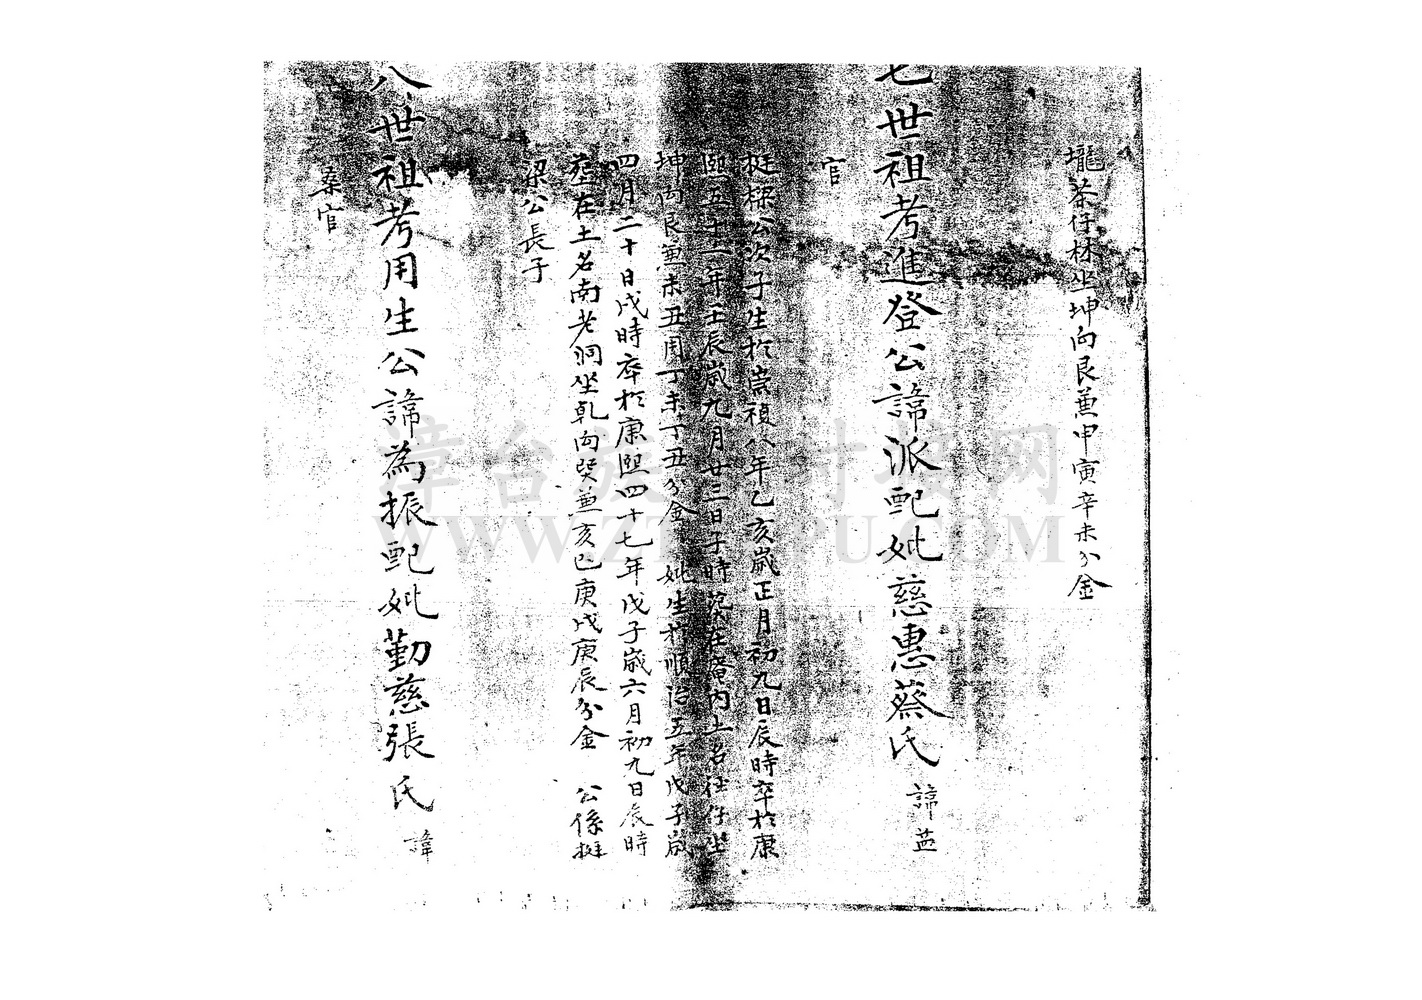 壠茶仔林坐坤向艮兼申寅辛未分金
七世祖考進登公諱派配妣慈惠蔡氏 諱燕
官
挺樑公次子生於崇禎八年乙亥歲正月初九日辰時卒於康
熙五十一年壬辰歲九月廿三日子時葬在庵內土名仔坐
坤向艮兼未丑用丁未丁丑分金 妣生於順治五年戊子歲
四月二十日戌時卒於康熙四十七年戊子歲六月初九日辰時
葬在土名南老洞坐乾向巽兼亥巳庚戌庚辰分金 公係挺
梁公長子
八世祖考用生公諱為振配妣勤慈張氏 諱
桑官
漳台族譜对接网
WWW.ZTZUPU.COM